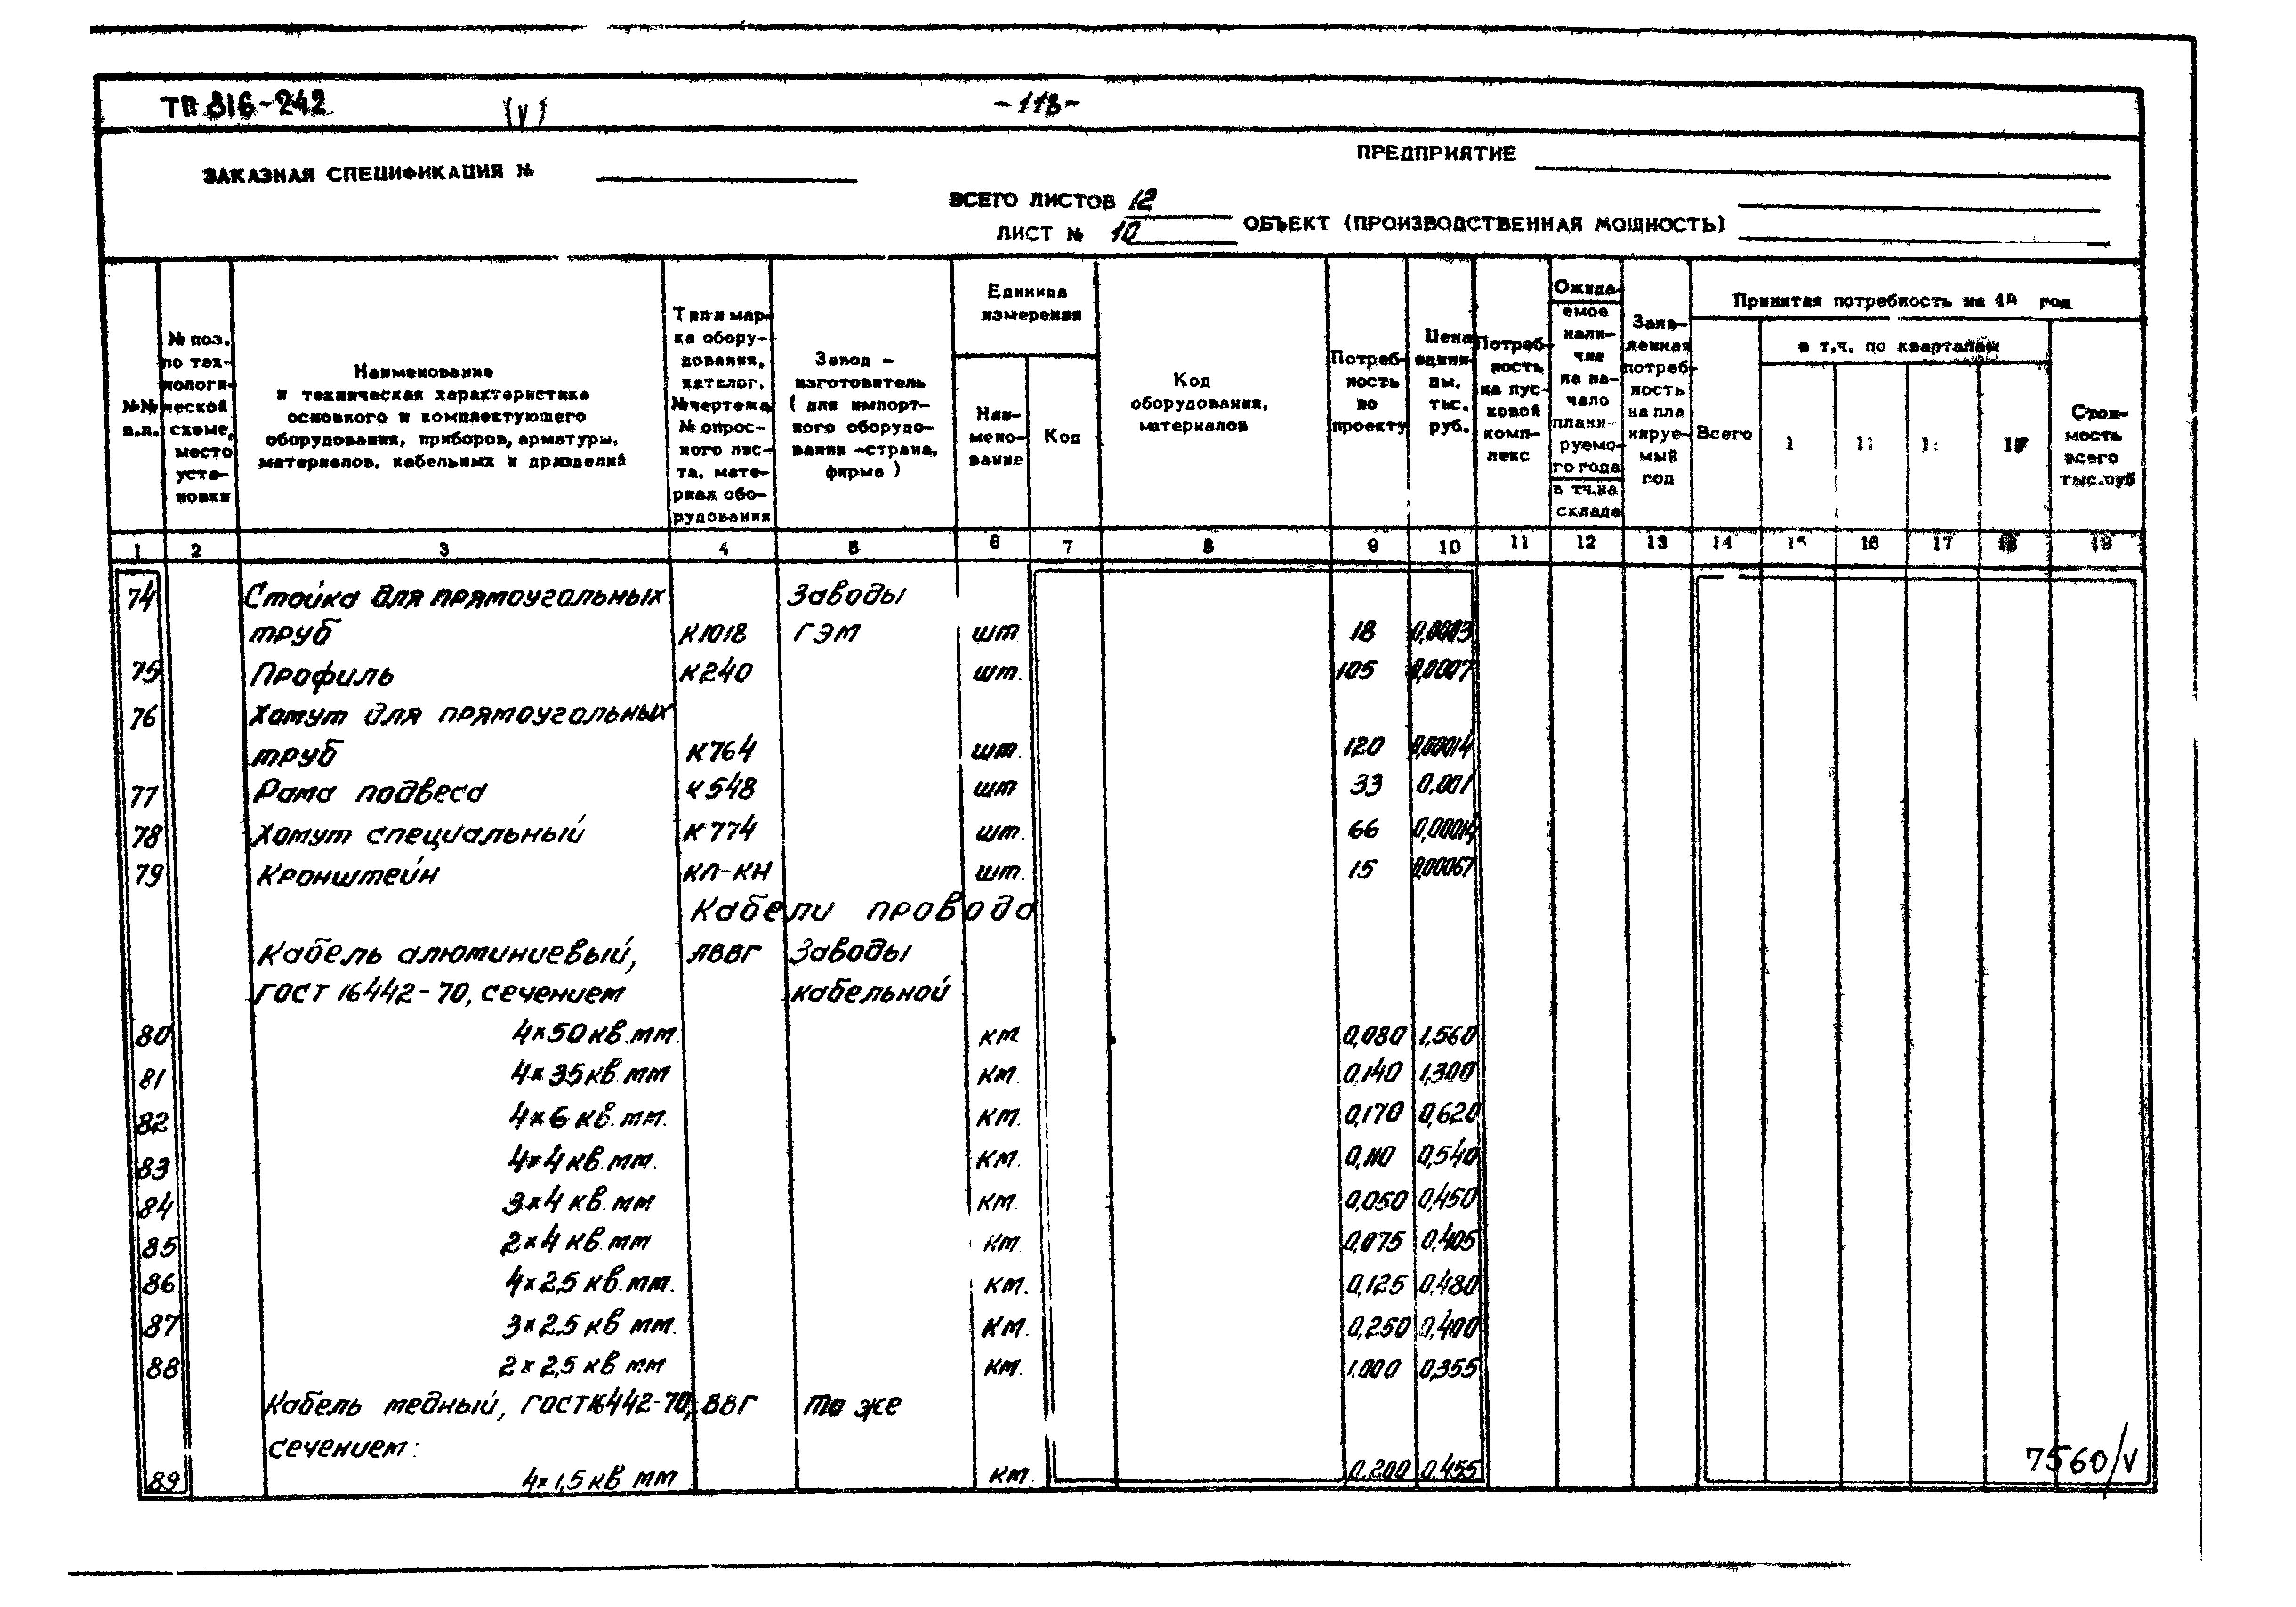 ТП 816-242 (V) -113-
ЗАКАЗНАЯ СПЕЦИФИКАЦИЯ №
ПРЕДПРИЯТИЕ
ВСЕГО ЛИСТОВ 12
ЛИСТ № 10 ОБЪЕКТ (ПРОИЗВОДСТВЕННАЯ МОЩНОСТЬ)
№№ п.п.
№ поз. по тех- нологи- ческой схеме, место уста- новки
Наименование и техническая характеристика основного и комплектующего оборудования, приборов, арматуры, материалов, кабельных и др.изделий
Тип и мар- ка обору- дования, каталог, №чертежа № опрос- ного лис- та, мате- риал обо- рудования
Завод - изготовитель ( для импорт- ного оборудо- вания -страна, фирма )
Единица измерения
Наи- мено- вание
Код
Код оборудования, материалов
Потреб- ность по проекту
Цена едини- цы, тыс. руб.
Потреб- ность на пус- ковой комп- лекс
Ожида- емое нали- чие на на- чало плани- руемо- го года
в т.ч.на складе
Заяв- ленная потреб- ность на пла нируе- мый год
Принятая потребность на 19 год
Всего
в т.ч. по кварталам
I II
Стои- мость всего тыс.руб
1 2 3 4 5 6 7 8 9 10 11 12 13 14 15 16 17 18 19
74 Стойка для прямоугольных Заводы
труб К1018 ГЭМ шт 18 0,0003
75 Профиль К240 шт. 105 0,0007
76 Хомут для прямоугольных
труб К764 шт. 120 0,00014
77 Рама подвеса К548 шт 33 0.001
78 Хомут специальный К774 шт. 66 0,00014
79 Кронштейн КЛ-КН шт. 15 0,00067
Кабели провода
Кабель алюминиевый, АВВГ Заводы
ГОСТ 16442-70, сечением кабельной
80 4×50 кв.мм. км. 0,080 1,560
81 4×35 кв.мм км. 0,140 1,300
82 4×6 кв.мм. км. 0,170 0,620
83 4×4 кв.мм. км. 0,110 0,540
84 3×4 кв.мм км. 0,050 0,450
85 2×4 кв.мм км. 0,075 0,405
86 4×2,5 кв.мм. км. 0,125 0,480
87 3×2,5 кв мм. км. 0,250 0,400
88 2×2,5 кв мм км. 1.000 0,355
Кабель медный, ГОСТ16442-70, ВВГ То же
сечением:
89 4×1,5 кв мм км. 0,200 0,455
7560/V